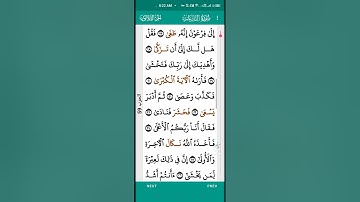 9:22 AM
سورة النازعات
إِلَىٰ فِرْعَوْنَ إِنَّهُۥ طَغَىٰ ۝ فَقُلْ
هَل لَّكَ إِلَىٰٓ أَن تَزَكَّىٰ ۝
وَأَهْدِيَكَ إِلَىٰ رَبِّكَ فَتَخْشَىٰ
۝ فَأَرَىٰهُ ٱلْءَايَةَ ٱلْكُبْرَىٰ ۝
فَكَذَّبَ وَعَصَىٰ ۝ ثُمَّ أَدْبَرَ
يَسْعَىٰ ۝ فَحَشَرَ فَنَادَىٰ ۝
فَقَالَ أَنَا۠ رَبُّكُمُ ٱلْأَعْلَىٰ ۝
فَأَخَذَهُ ٱللَّهُ نَكَالَ ٱلْءَاخِرَةِ
وَٱلْأُولَىٰٓ ۝ إِنَّ فِى ذَٰلِكَ لَعِبْرَةً
لِّمَن يَخْشَىٰٓ ۝ ءَأَنتُمْ أَشَدُّ
NEXT PREV